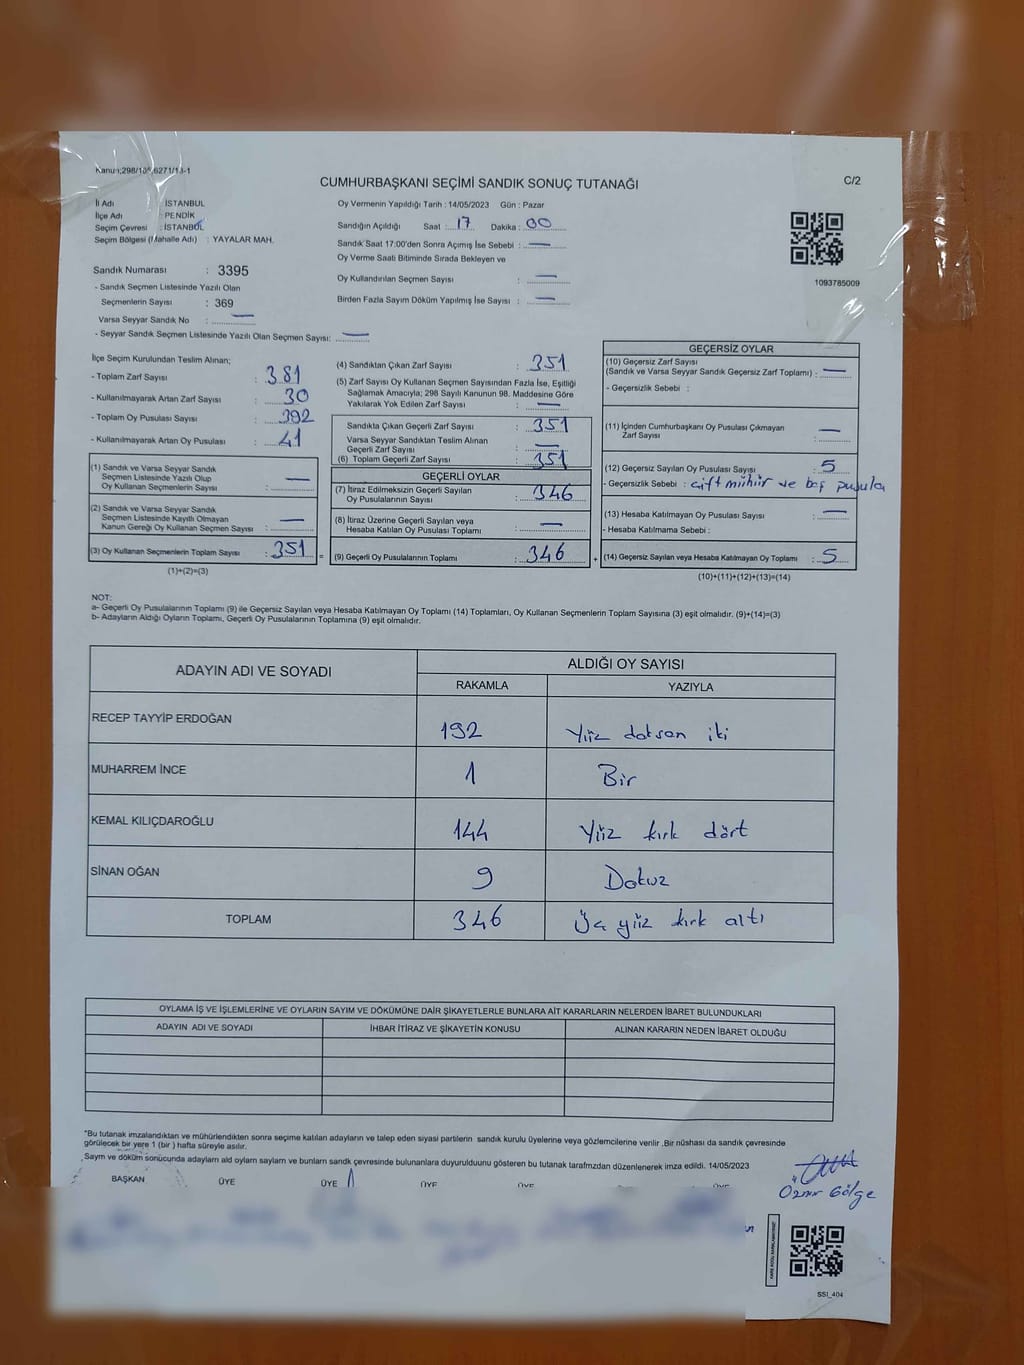 Kanun;298/105,6271/13-1
CUMHURBAŞKANI SEÇİMİ SANDIK SONUÇ TUTANAĞI
C/2
İl Adı : İSTANBUL
İlçe Adı : PENDİK
Seçim Çevresi : İSTANBUL
Seçim Bölgesi (Mahalle Adı) : YAYALAR MAH.
Sandık Numarası : 3395
- Sandık Seçmen Listesinde Yazılı Olan
Seçmenlerin Sayısı : 369
Varsa Seyyar Sandık No : —
- Seyyar Sandık Seçmen Listesinde Yazılı Olan Seçmen Sayısı: —
Oy Vermenin Yapıldığı Tarih : 14/05/2023 Gün : Pazar
Sandığın Açıldığı Saat : 17 Dakika : 00
Sandık Saat 17:00'den Sonra Açımış İse Sebebi : —
Oy Verme Saati Bitiminde Sırada Bekleyen ve
Oy Kullandırılan Seçmen Sayısı : —
Birden Fazla Sayım Döküm Yapılmış İse Sayısı : —
1093785009
İlçe Seçim Kurulundan Teslim Alınan;
- Toplam Zarf Sayısı : 381
- Kullanılmayarak Artan Zarf Sayısı : 30
- Toplam Oy Pusulası Sayısı : 392
- Kullanılmayarak Artan Oy Pusulası : 41
(1) Sandık ve Varsa Seyyar Sandık
Seçmen Listesinde Yazılı Olup
Oy Kullanan Seçmenlerin Sayısı : —
(2) Sandık ve Varsa Seyyar Sandık
Seçmen Listesinde Kayıtlı Olmayan
Kanun Gereği Oy Kullanan Seçmen Sayısı : —
(3) Oy Kullanan Seçmenlerin Toplam Sayısı : 351 =
(1)+(2)=(3)
(4) Sandıktan Çıkan Zarf Sayısı : 351
(5) Zarf Sayısı Oy Kullanan Seçmen Sayısından Fazla İse, Eşitliği
Sağlamak Amacıyla; 298 Sayılı Kanunun 98. Maddesine Göre
Yakılarak Yok Edilen Zarf Sayısı : —
Sandıkta Çıkan Geçerli Zarf Sayısı : 351
Varsa Seyyar Sandıktan Teslim Alınan
Geçerli Zarf Sayısı : —
(6) Toplam Geçerli Zarf Sayısı : 351
GEÇERLİ OYLAR
(7) İtiraz Edilmeksizin Geçerli Sayılan
Oy Pusulalarının Sayısı : 346
(8) İtiraz Üzerine Geçerli Sayılan veya
Hesaba Katılan Oy Pusulası Toplamı : —
(9) Geçerli Oy Pusulalarının Toplamı : 346 +
GEÇERSİZ OYLAR
(10) Geçersiz Zarf Sayısı
(Sandık ve Varsa Seyyar Sandık Geçersiz Zarf Toplamı) : —
- Geçersizlik Sebebi :
(11) İçinden Cumhurbaşkanı Oy Pusulası Çıkmayan
Zarf Sayısı : —
(12) Geçersiz Sayılan Oy Pusulası Sayısı : 5
- Geçersizlik Sebebi : çift mühür ve boş pusula
(13) Hesaba Katılmayan Oy Pusulası Sayısı : —
- Hesaba Katılmama Sebebi :
(14) Geçersiz Sayılan veya Hesaba Katılmayan Oy Toplamı : 5
(10)+(11)+(12)+(13)=(14)
NOT:
a- Geçerli Oy Pusulalarının Toplamı (9) ile Geçersiz Sayılan veya Hesaba Katılmayan Oy Toplamı (14) Toplamları, Oy Kullanan Seçmenlerin Toplam Sayısına (3) eşit olmalıdır. (9)+(14)=(3)
b- Adayların Aldığı Oyların Toplamı, Geçerli Oy Pusulalarının Toplamına (9) eşit olmalıdır.
ADAYIN ADI VE SOYADI ALDIĞI OY SAYISI
RAKAMLA YAZIYLA
RECEP TAYYİP ERDOĞAN 192 Yüz doksan iki
MUHARREM İNCE 1 Bir
KEMAL KILIÇDAROĞLU 144 Yüz kırk dört
SİNAN OĞAN 9 Dokuz
TOPLAM 346 Üç yüz kırk altı
OYLAMA İŞ VE İŞLEMLERİNE VE OYLARIN SAYIM VE DÖKÜMÜNE DAİR ŞİKAYETLERLE BUNLARA AİT KARARLARIN NELERDEN İBARET BULUNDUKLARI
ADAYIN ADI VE SOYADI İHBAR İTİRAZ VE ŞİKAYETİN KONUSU ALINAN KARARIN NEDEN İBARET OLDUĞU
"Bu tutanak imzalandıktan ve mühürlendikten sonra seçime katılan adayların ve talep eden siyasi partilerin sandık kurulu üyelerine veya gözlemcilerine verilir .Bir nüshası da sandık çevresinde
görülecek bir yere 1 (bir ) hafta süreyle asılır.
Sayım ve döküm sonucunda adayların ald oyların sayların ve bunların sandk çevresinde bulunanlara duyurulduunu gösteren bu tutanak tarafmzdan düzenlenerek imza edildi. 14/05/2023
BAŞKAN ÜYE ÜYE ÜYE ÜYE ÜYE
Öznur Gölge
SSI_404